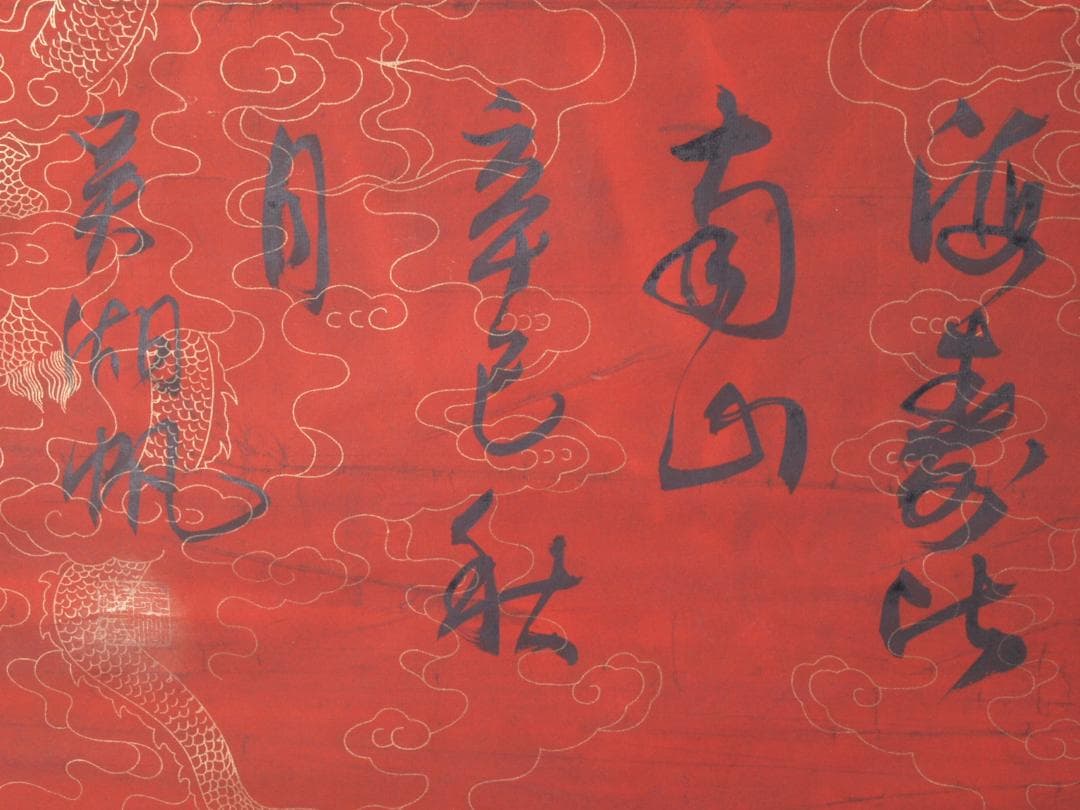 海寿比
南山
辛巳秋
月
吴湖帆